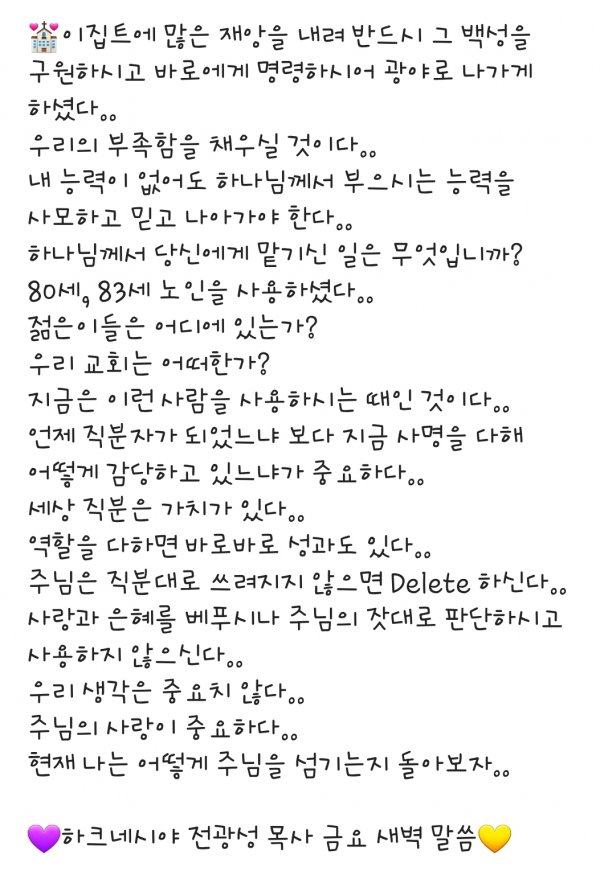 💒이집트에 많은 재앙을 내려 반드시 그 백성을
구원하시고 바로에게 명령하시어 광야로 나가게
하셨다。。
우리의 부족함을 채우실 것이다。。
내 능력이 없어도 하나님께서 부으시는 능력을
사모하고 믿고 나아가야 한다。。
하나님께서 당신에게 맡기신 일은 무엇입니까?
80세, 83세 노인을 사용하셨다。。
젊은이들은 어디에 있는가?
우리 교회는 어떠한가?
지금은 이런 사람을 사용하시는 때인 것이다。。
언제 직분자가 되었느냐 보다 지금 사명을 다해
어떻게 감당하고 있느냐가 중요하다。。
세상 직분은 가치가 있다。。
역할을 다하면 바로바로 성과도 있다。。
주님은 직분대로 쓰려지지 않으면 Delete 하신다。。
사랑과 은혜를 베푸시나 주님의 잣대로 판단하시고
사용하지 않으신다。。
우리 생각은 중요치 않다。。
주님의 사랑이 중요하다。。
현재 나는 어떻게 주님을 섬기는지 돌아보자。。
💜하크네시야 전광성 목사 금요 새벽 말씀💛